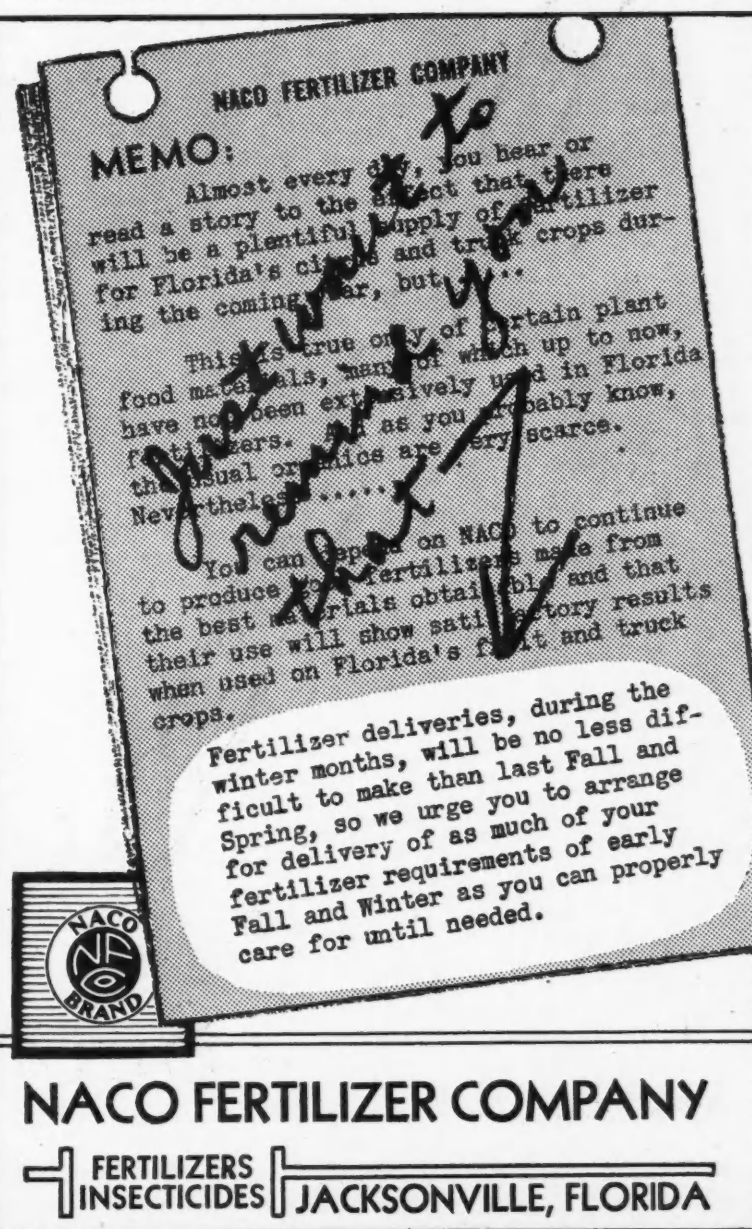 NACO FERTILIZER COMPANY
MEMO:
Almost every day, you hear or
read a story to the effect that there
will be a plentiful supply of fertilizer
for Florida's citrus and truck crops dur-
ing the coming year, but.....
This is true only of certain plant
food materials, many of which up to now,
have not been extensively used in Florida
fertilizers. And as you probably know,
the usual organics are very scarce.
Nevertheless.....
You can depend on NACO to continue
to produce fertilizers made from
the best materials obtainable and that
their use will show satisfactory results
when used on Florida's fruit and truck
crops.
Just want to
remind you
that
Fertilizer deliveries, during the
winter months, will be no less dif-
ficult to make than last Fall and
Spring, so we urge you to arrange
for delivery of as much of your
fertilizer requirements of early
Fall and Winter as you can properly
care for until needed.
NACO
BRAND
NACO FERTILIZER COMPANY
FERTILIZERS
INSECTICIDES
JACKSONVILLE, FLORIDA